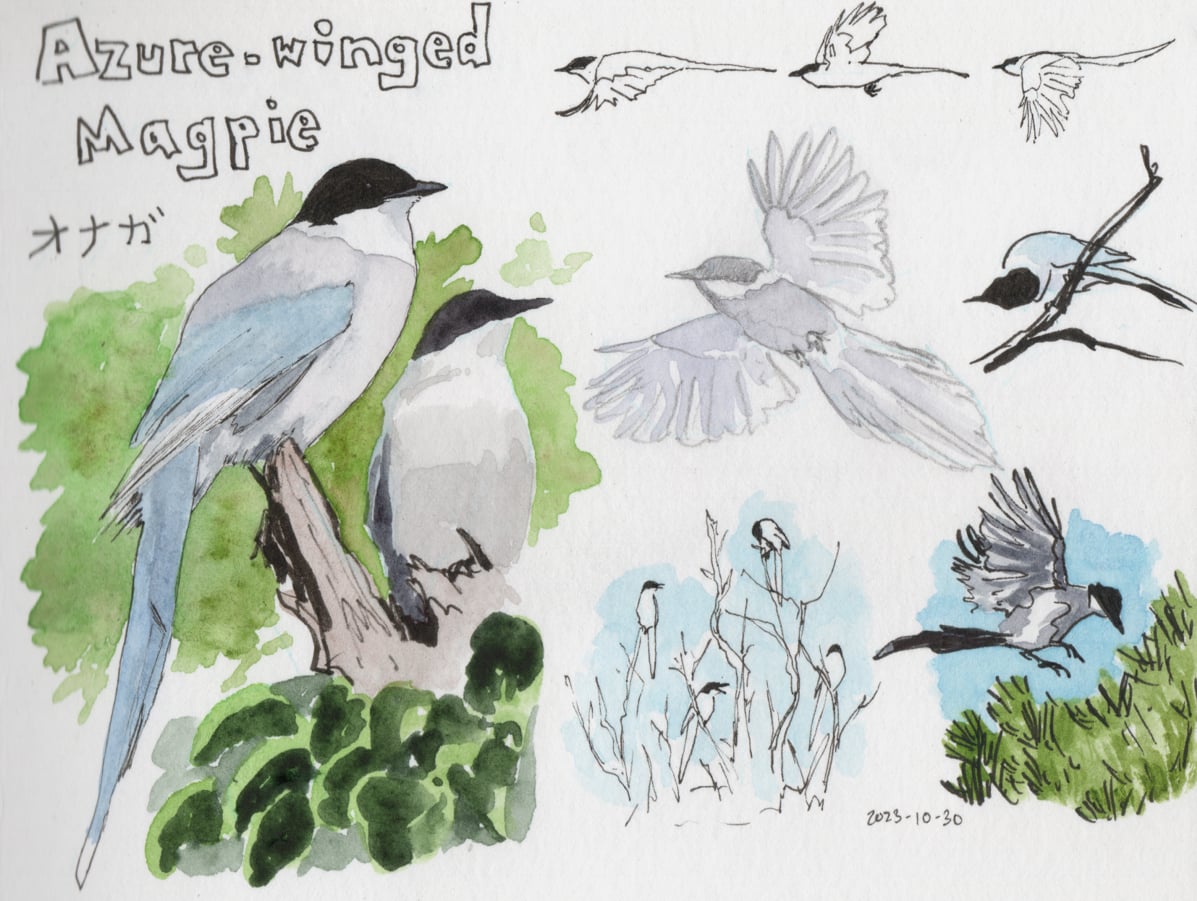 Azure-winged
Magpie
オナガ
2023-10-30